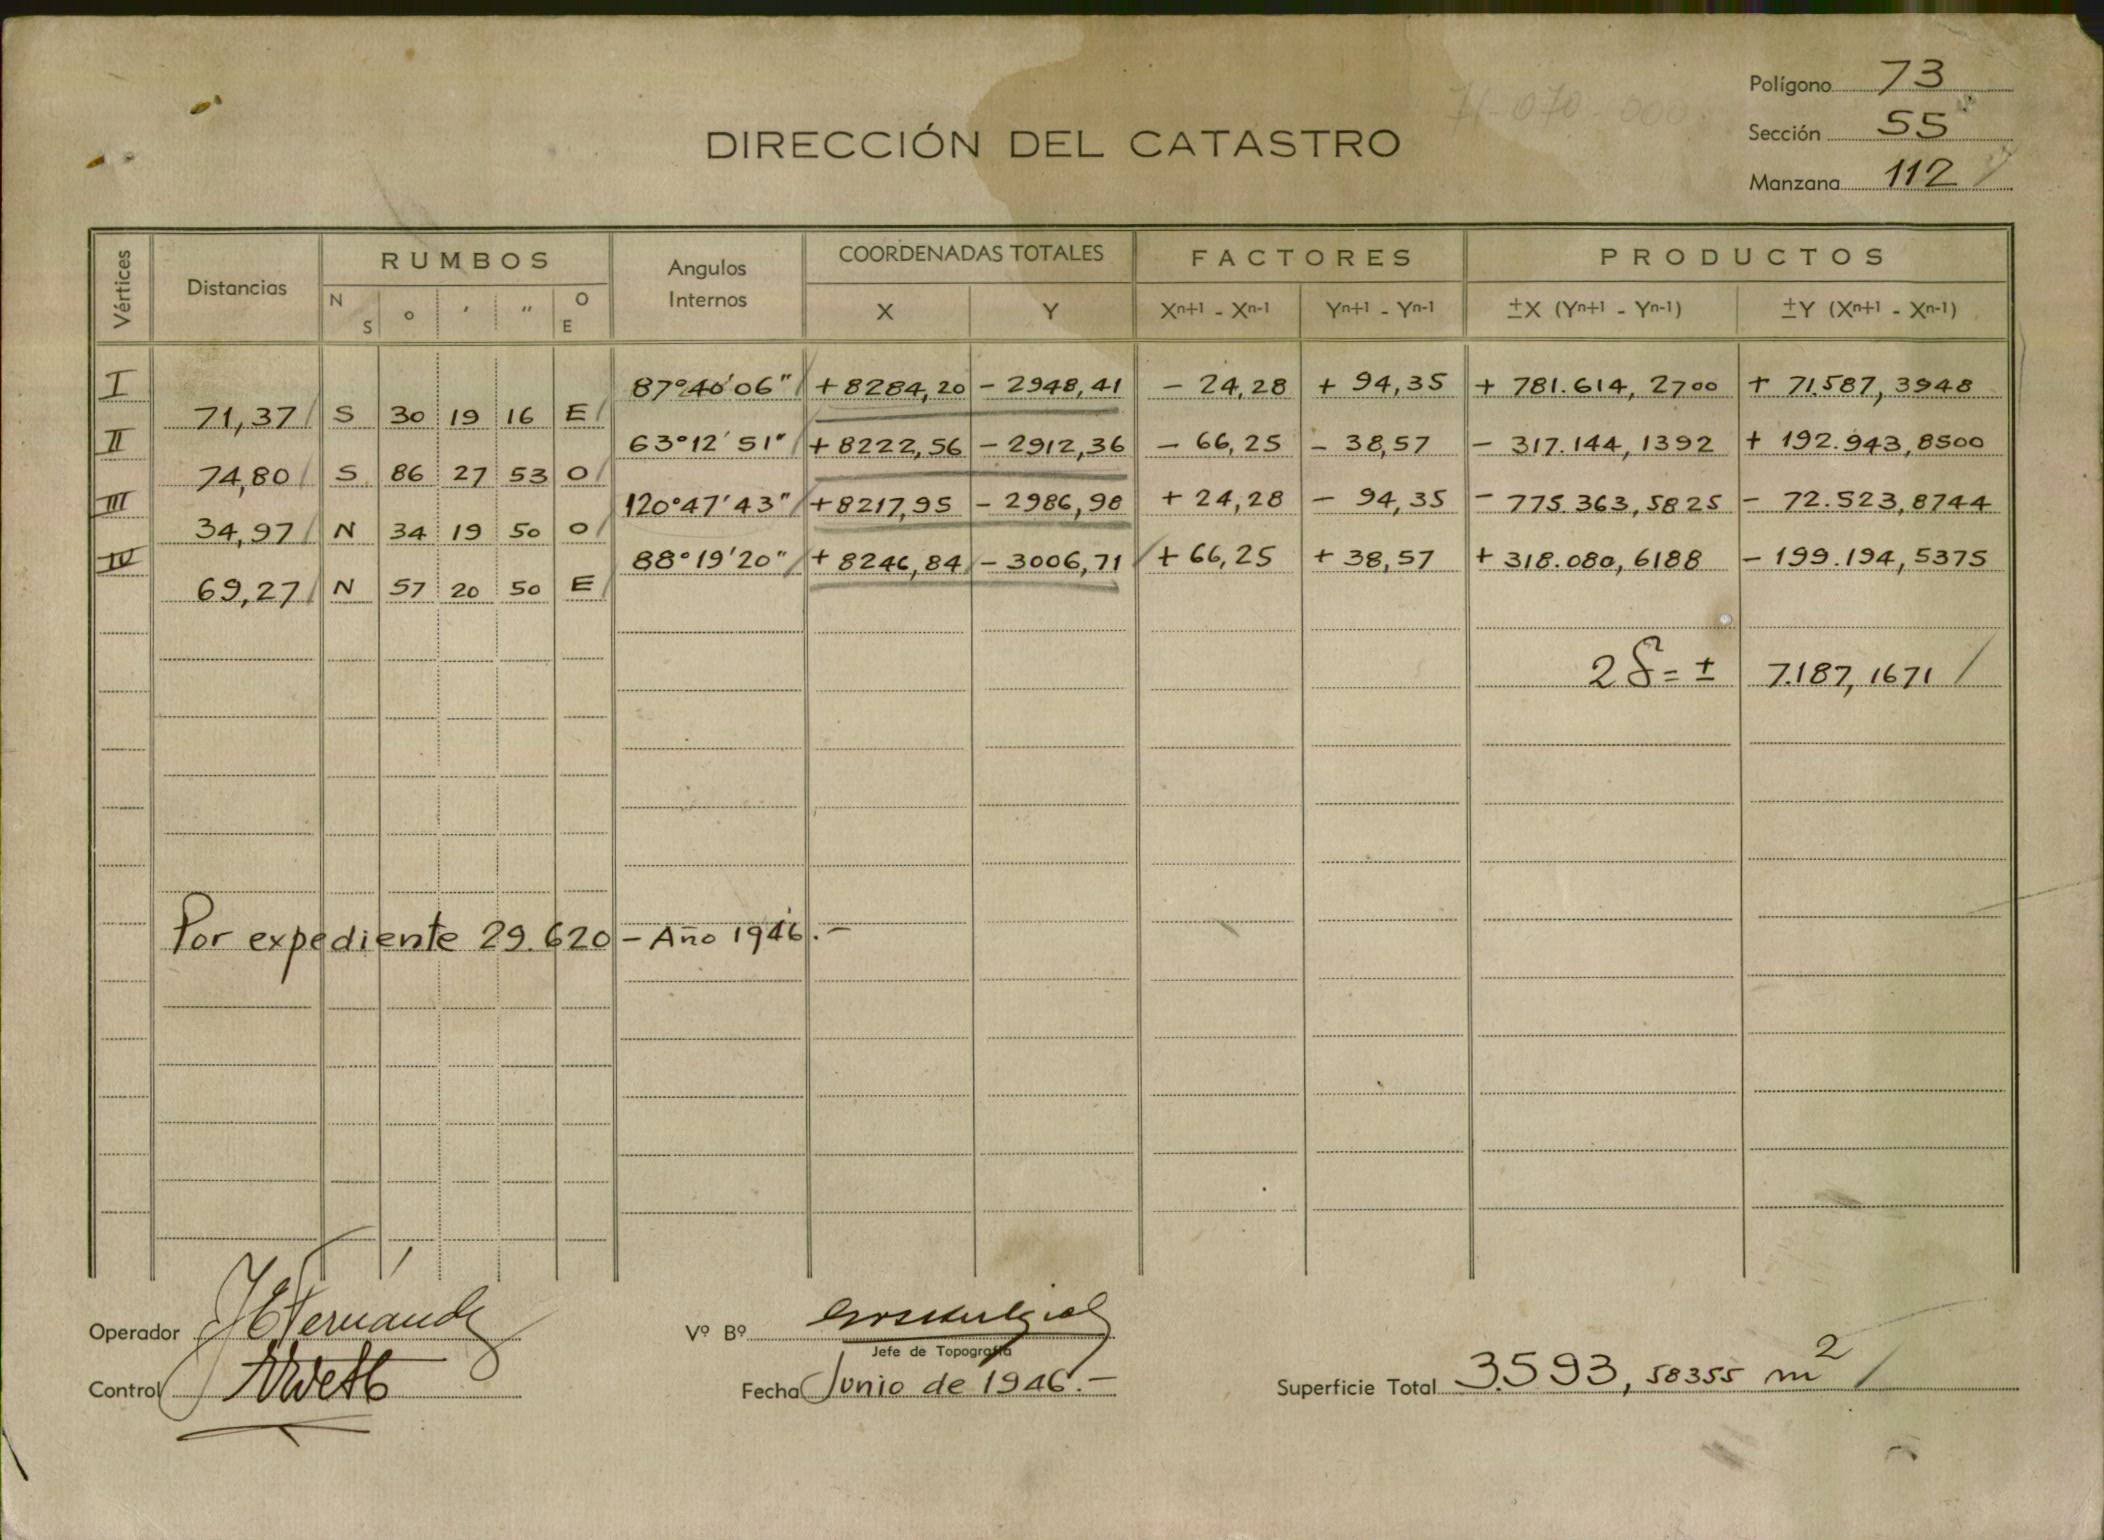 Polígono 73
Sección 55
DIRECCIÓN DEL CATASTRO
Manzana 112
Vértices Distancias RUMBOS Angulos Internos COORDENADAS TOTALES FACTORES PRODUCTOS
N S ° ' " O E X Y Xn+1 - Xn-1 Yn+1 - Yn-1 ±X (Yn+1 - Yn-1) ±Y (Xn+1 - Xn-1)
I 87°40'06" +8284,20 - 2948,41 - 24,28 + 94,35 + 781.614,2700 + 71.587,3948
71,37 S 30 19 16 E
II 63°12'51" +8222,56 - 2912,36 - 66,25 - 38,57 - 317.144,1392 + 192.943,8500
74,80 S 86 27 53 O
III 120°47'43" +8217,95 - 2986,98 + 24,28 - 94,35 - 775.363,5825 - 72.523,8744
34,97 N 34 19 50 O
IV 88°19'20" + 8246,84 - 3006,71 + 66,25 + 38,57 + 318.080,6188 - 199.194,5375
69,27 N 57 20 50 E
2S = ± 7.187,1671
Por expediente 29.620 - Año 1946.-
Operador
Vº Bº
Jefe de Topografía
Control
Fecha Junio de 1946.-
Superficie Total 3.593,58355 m2